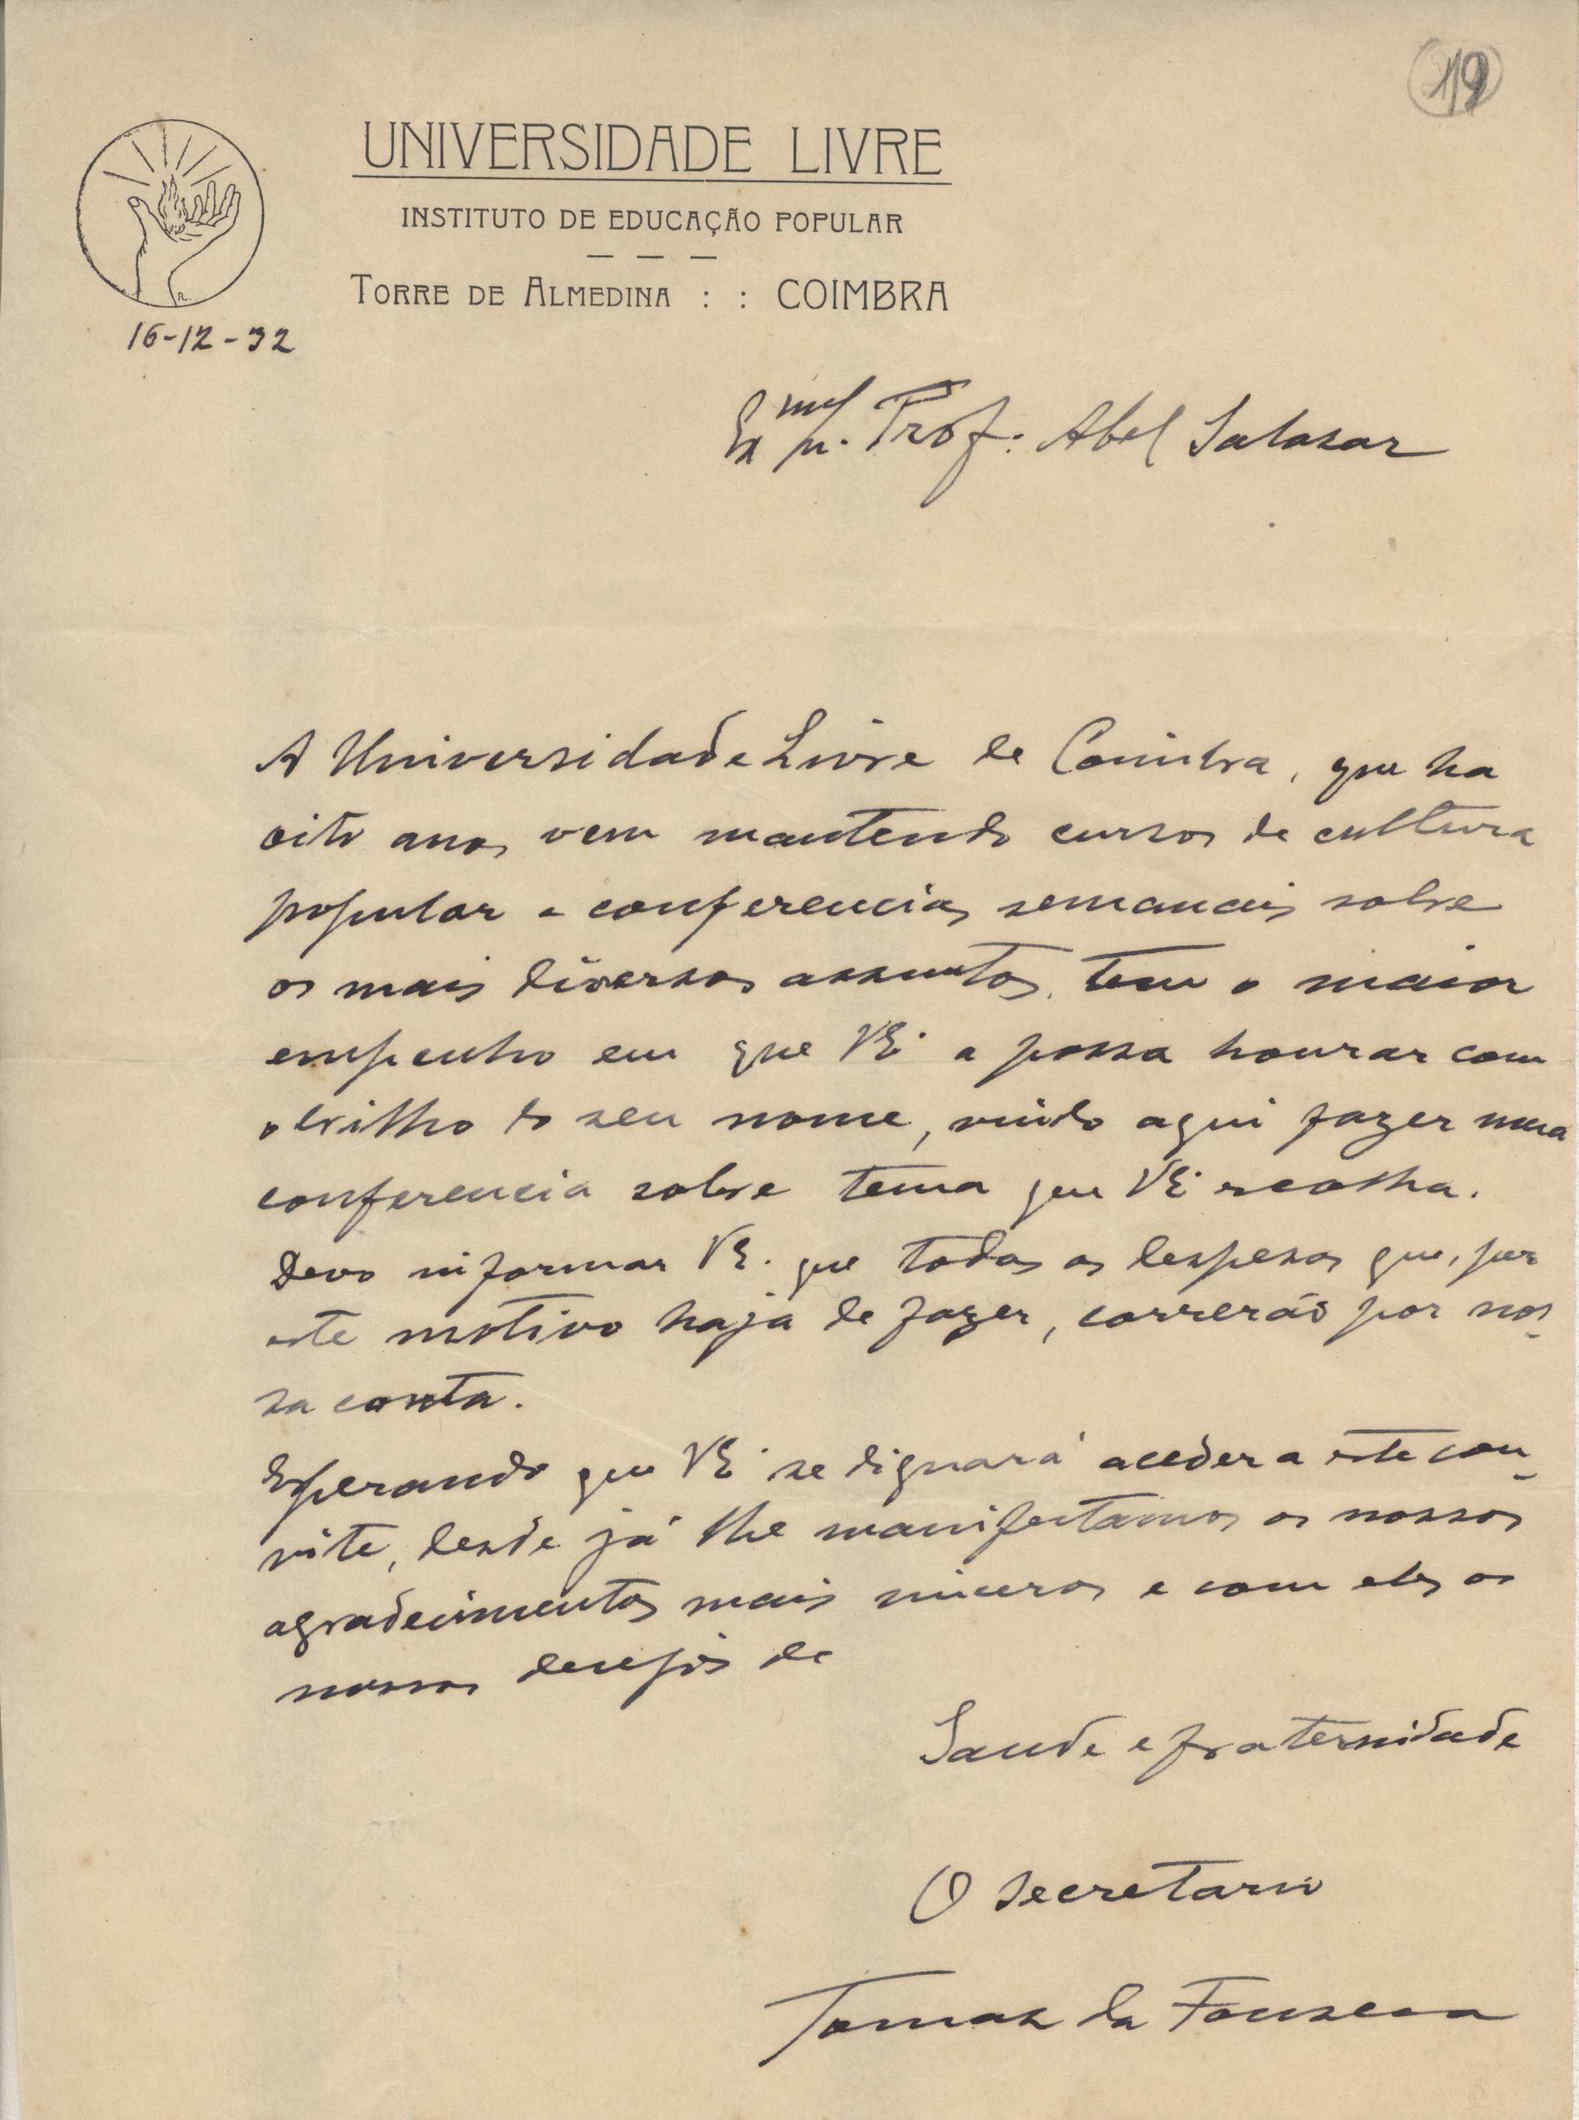 19
UNIVERSIDADE LIVRE
INSTITUTO DE EDUCAÇÃO POPULAR
TORRE DE ALMEDINA : : COIMBRA
16-12-32
Exmo Sr. Prof. Abel Salazar
A Universidade Livre de Coimbra, que ha
oito anos vem mantendo cursos de cultura
popular e conferencias semanais sobre
os mais diversos assuntos, tem o maior
empenho em que VE. a possa honrar com
o brilho do seu nome, vindo aqui fazer uma
conferencia sobre tema que VE. escolha.
Devo informar VE. que todas as despesas que, por
este motivo haja de fazer, correrão por nos-
sa conta.
Esperando que VE. se dignará aceder a este con-
vite, desde já lhe manifestamos os nossos
agradecimentos mais sinceros e com eles os
nossos desejos de
Saude e fraternidade
O secretario
Tomaz da Fonseca